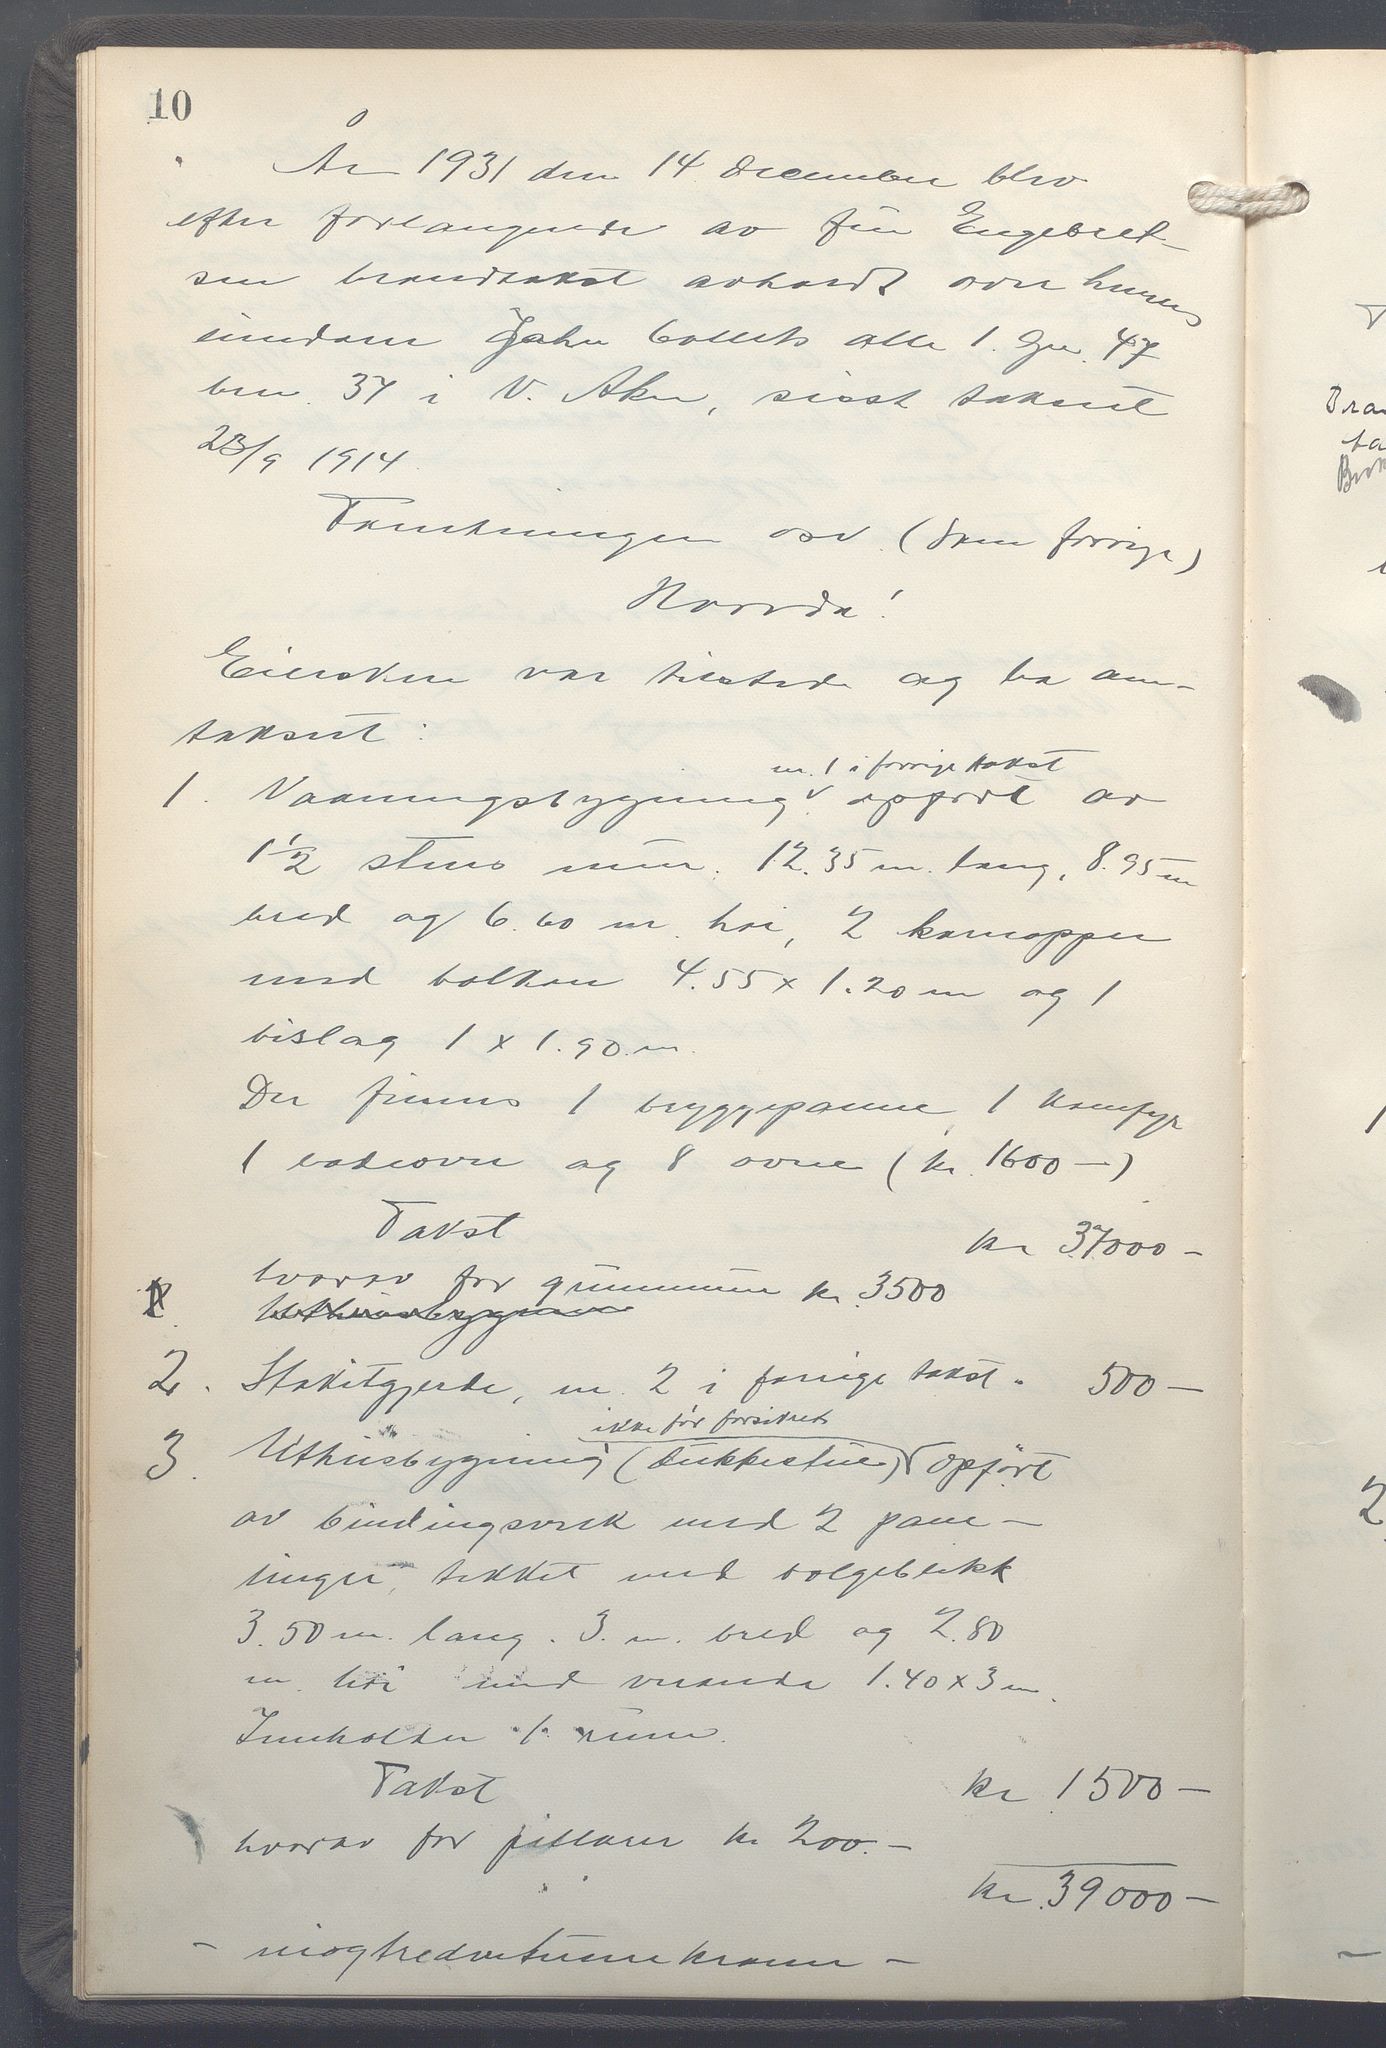 10
År 1931 den 14 december blev
efter forlangende av fru Engebret-
sen brandtakst avholdt over hennes
eiendom John Collets alle 1. Gnr. 47
bnr. 37 i V. Aker, sisst taksert
23/9 1914.
Forretningen osv. (Som forrige)
Hvorda!
Eiersken var tilstede og ba om-
taksert:
nr. 1 i forrige takst
1. Vaaningsbygning opført av
1½ stens mur. 12.35 m. lang, 8.95 m
bred og 6.60 m. høi, 2 karnapper
med balkon 4.55 x 1.20 m og 1
bislag 1 x 1.90 m.
Der finnes 1 bryggepanne, 1 komfyr
1 badeovn og 8 ovne (kr. 1600 —)
Takst kr 37000 —
hvorav for grunnmur kr. 3500
Uthusbygning
2. Stakitgjerde, nr. 2 i forrige takst " 500 —
ikke før forsikret
3. Uthusbygning (Dukkestue) opført
av bindingsverk med 2 pane-
linger, tekket med bølgeblikk
3.50 m. lang. 3. m. bred og 2.80
m. høi med veranda 1.40 x 3 m.
Inneholder 1 rum.
Takst kr 1500 —
hvorav for pillarer kr 200. —
kr. 39000 —
- niogtredvetusenkroner -
Bra
ta
2